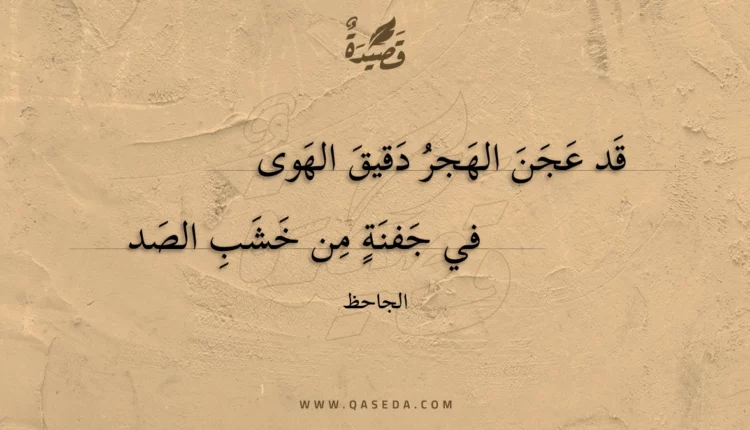 قَصيدَةٌ
قَد عَجَنَ الهَجرُ دَقيقَ الهَوى
في جَفنَةٍ مِن خَشَبِ الصَد
الجاحظ
WWW.QASEDA.COM